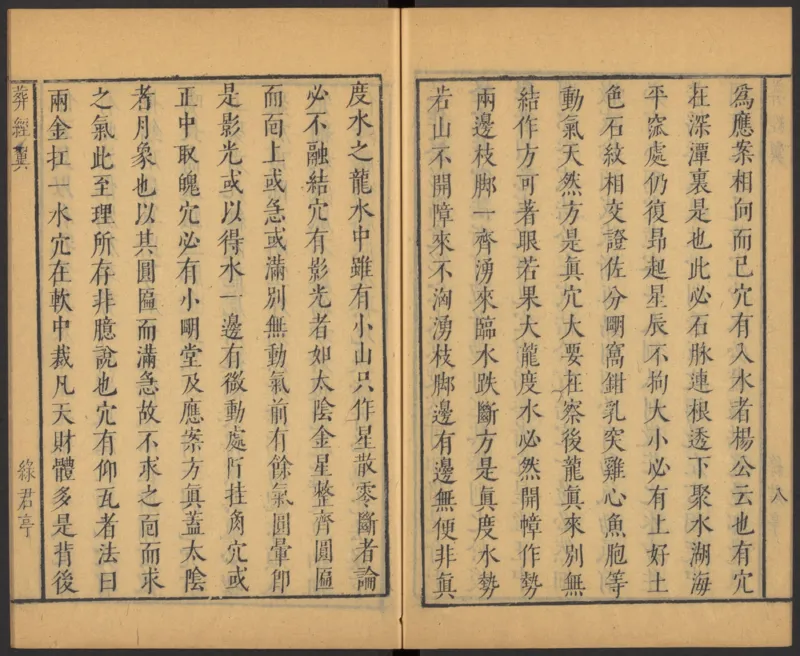 為應案相向而已穴有入水者楊公云也有穴
在深潭裏是也此必石脉連根透下聚水湖海
平窊處仍復昂起星辰不拘大小必有上好土
色石紋相交證佐分朙窩鉗乳突雞心魚胞等
動氣天然方是眞穴大要在察後龍眞來別無
結作方可著眼若果大龍度水必然開幛作勢
兩邊枝脚一齊湧來臨水跌斷方是眞度水勢
若山不開障來不洶湧枝脚邊有邊無便非眞
八
度水之龍水中雖有小山只作星散零斷者論
必不融結穴有影光者如太陰金星整齊圓匾
而面上或急或滿別無動氣前有餘氣圓暈卽
是影光或以得水一邊有微動處斤挂角穴或
正中取魄穴必有小朙堂及應案方眞蓋太陰
者月象也以其圓匾而滿急故不求之面而求
之氣此至理所存非臆說也穴有仰瓦者法曰
兩金扛一水穴在軟中裁凡天財體多是背後
葬經翼
綠君亭